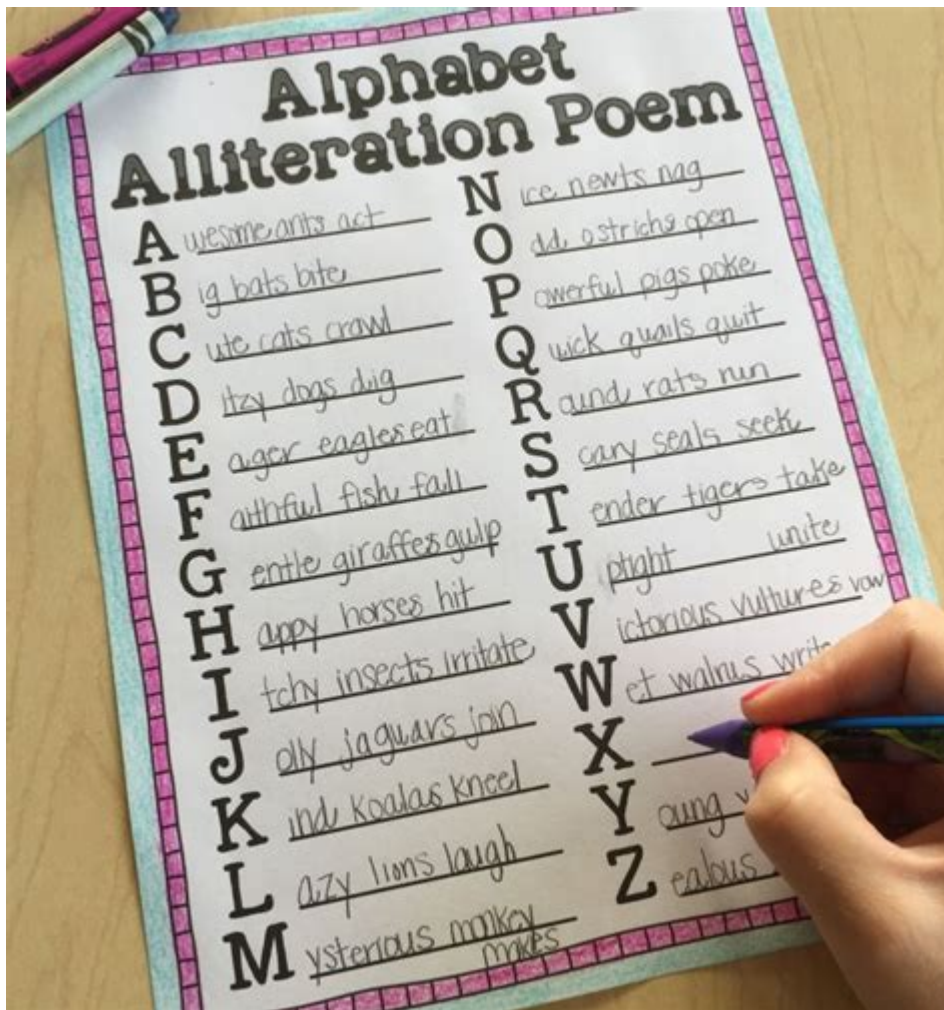 Alphabet
Alliteration Poem
Awesome ants act
Big bats bite
Cute cats crawl
Ditzy dogs dig
Eager eagles eat
Faithful fish fall
Gentle giraffes gulp
Happy horses hit
Itchy insects irritate
Jolly jaguars join
Kind koalas kneel
Lazy lions laugh
Mysterious monkey
makes
Nice newts nag
Odd ostrichs open
Powerful pigs poke
Quick quails quit
Round rats run
Scary seals seek
Tender tigers take
Uptight unite
Victorious vultures vow
Wet walrus write
X
Young
Zealous